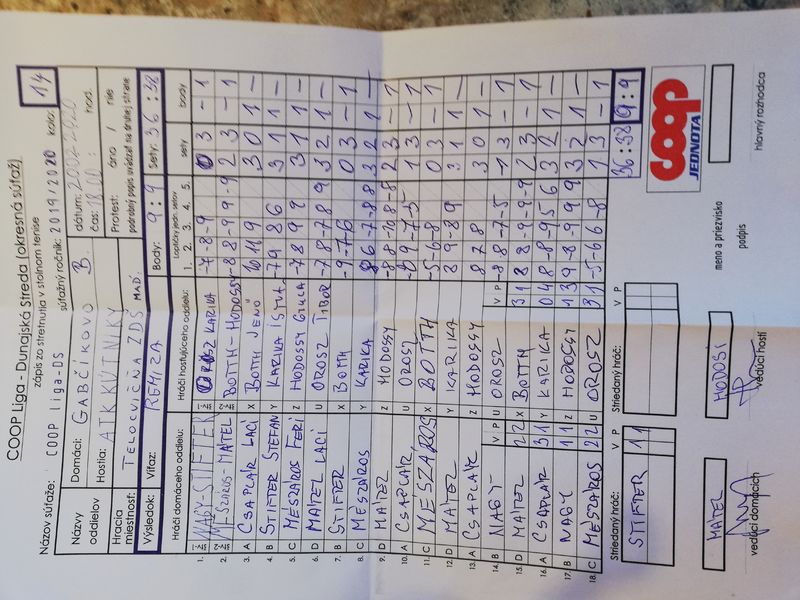 COOP Liga - Dunajská Streda (okresná súťaž)
zápis zo stretnutia v stolnom tenise
Názov súťaže: COOP liga-DS súťažný ročník: 2019/2020 kolo: 14
Názvy oddielov
Domáci: GABČÍKOVO B.
Hostia: ATK KÚTNIKY
dátum:
čas: 18.00 hod.
Hracia miestnosť: TELOCVIČŇA ZDŠ MAĎ.
Protest: áno / nie
podrobný popis uvádzať na druhej strane
Výsledok: Víťaz: REMÍZA Body: 9:9 sety: 36:38
Hráči domáceho oddielu: Hráči hosťujúceho oddielu: Loptičky jedn. setov sety body
1. 2. 3. 4. 5.
1. NAGY-STIFTER OROSZ KARIKA -7-8-9 0 3 - 1
2. -MATEL BOTTH-HODOSSY 2 3 - 1
3. A CSAPLÁR LACI X BOTTH JENŐ 10 11 9 3 0 1 -
4. B STIFTER STEFAN Y KARIKA -7 9 8 6 3 1 1 -
5. C MESZÁROS FERI Z HODOSSY GYULA -7 8 9 9 3 1 1 -
6. D MATEL LACI U OROSZ TIBOR -7 8 -7 8 9 3 2 1 -
7. B STIFTER X BOTTH -9 -7 -6 0 3 - 1
8. C MESZÁROS Y KARIKA 3 2 1 -
9. D MATEL Z HODOSSY 2 3 - 1
10. A CSAPLÁR U OROSZ 1 3 - 1
11. C MÉSZÁROS X BOTTH -5 -6 -8 0 3 - 1
12. D MATEL Y KARIKA 3 1 1 -
13. A CSAPLÁR Z HODOSSY 8 7 8 3 0 1 -
14. B NAGY V P U OROSZ V P -8 8 -7 -5 1 3 - 1
15. D MATEL 2 2 X BOTTH 3 1 2 3 - 1
16. A CSAPLÁR 3 1 Y KARIKA 0 4 8 -8 -9 5 6 3 2 1 -
17. B NAGY 1 1 Z HODOSSY 1 3 9 -8 -9 9 9 3 2 1 -
18. C MESZÁROS 2 2 U OROSZ 3 1 -5 -6 6 -8 1 3 - 1
Striedaný hráč: V P Striedaný hráč: V P 36:38 9:9
STIFTER 1 1
coop
JEDNOTA
MATEL
vedúci domácich
HODOSI
vedúci hostí
meno a priezvisko
podpis
hlavný rozhodca